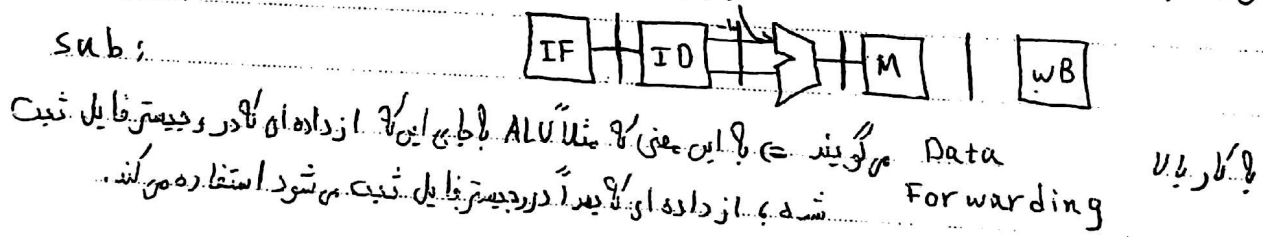 sub;
IF ID -4 M WB
به کار بالا Data می‌گویند => به این معنی که مثلاً ALU به جای این‌که از داده‌ای که در رجیستر فایل ثبت
Forwarding شده، از داده‌ای که بعداً در رجیستر فایل ثبت می‌شود استفاده می‌کند.